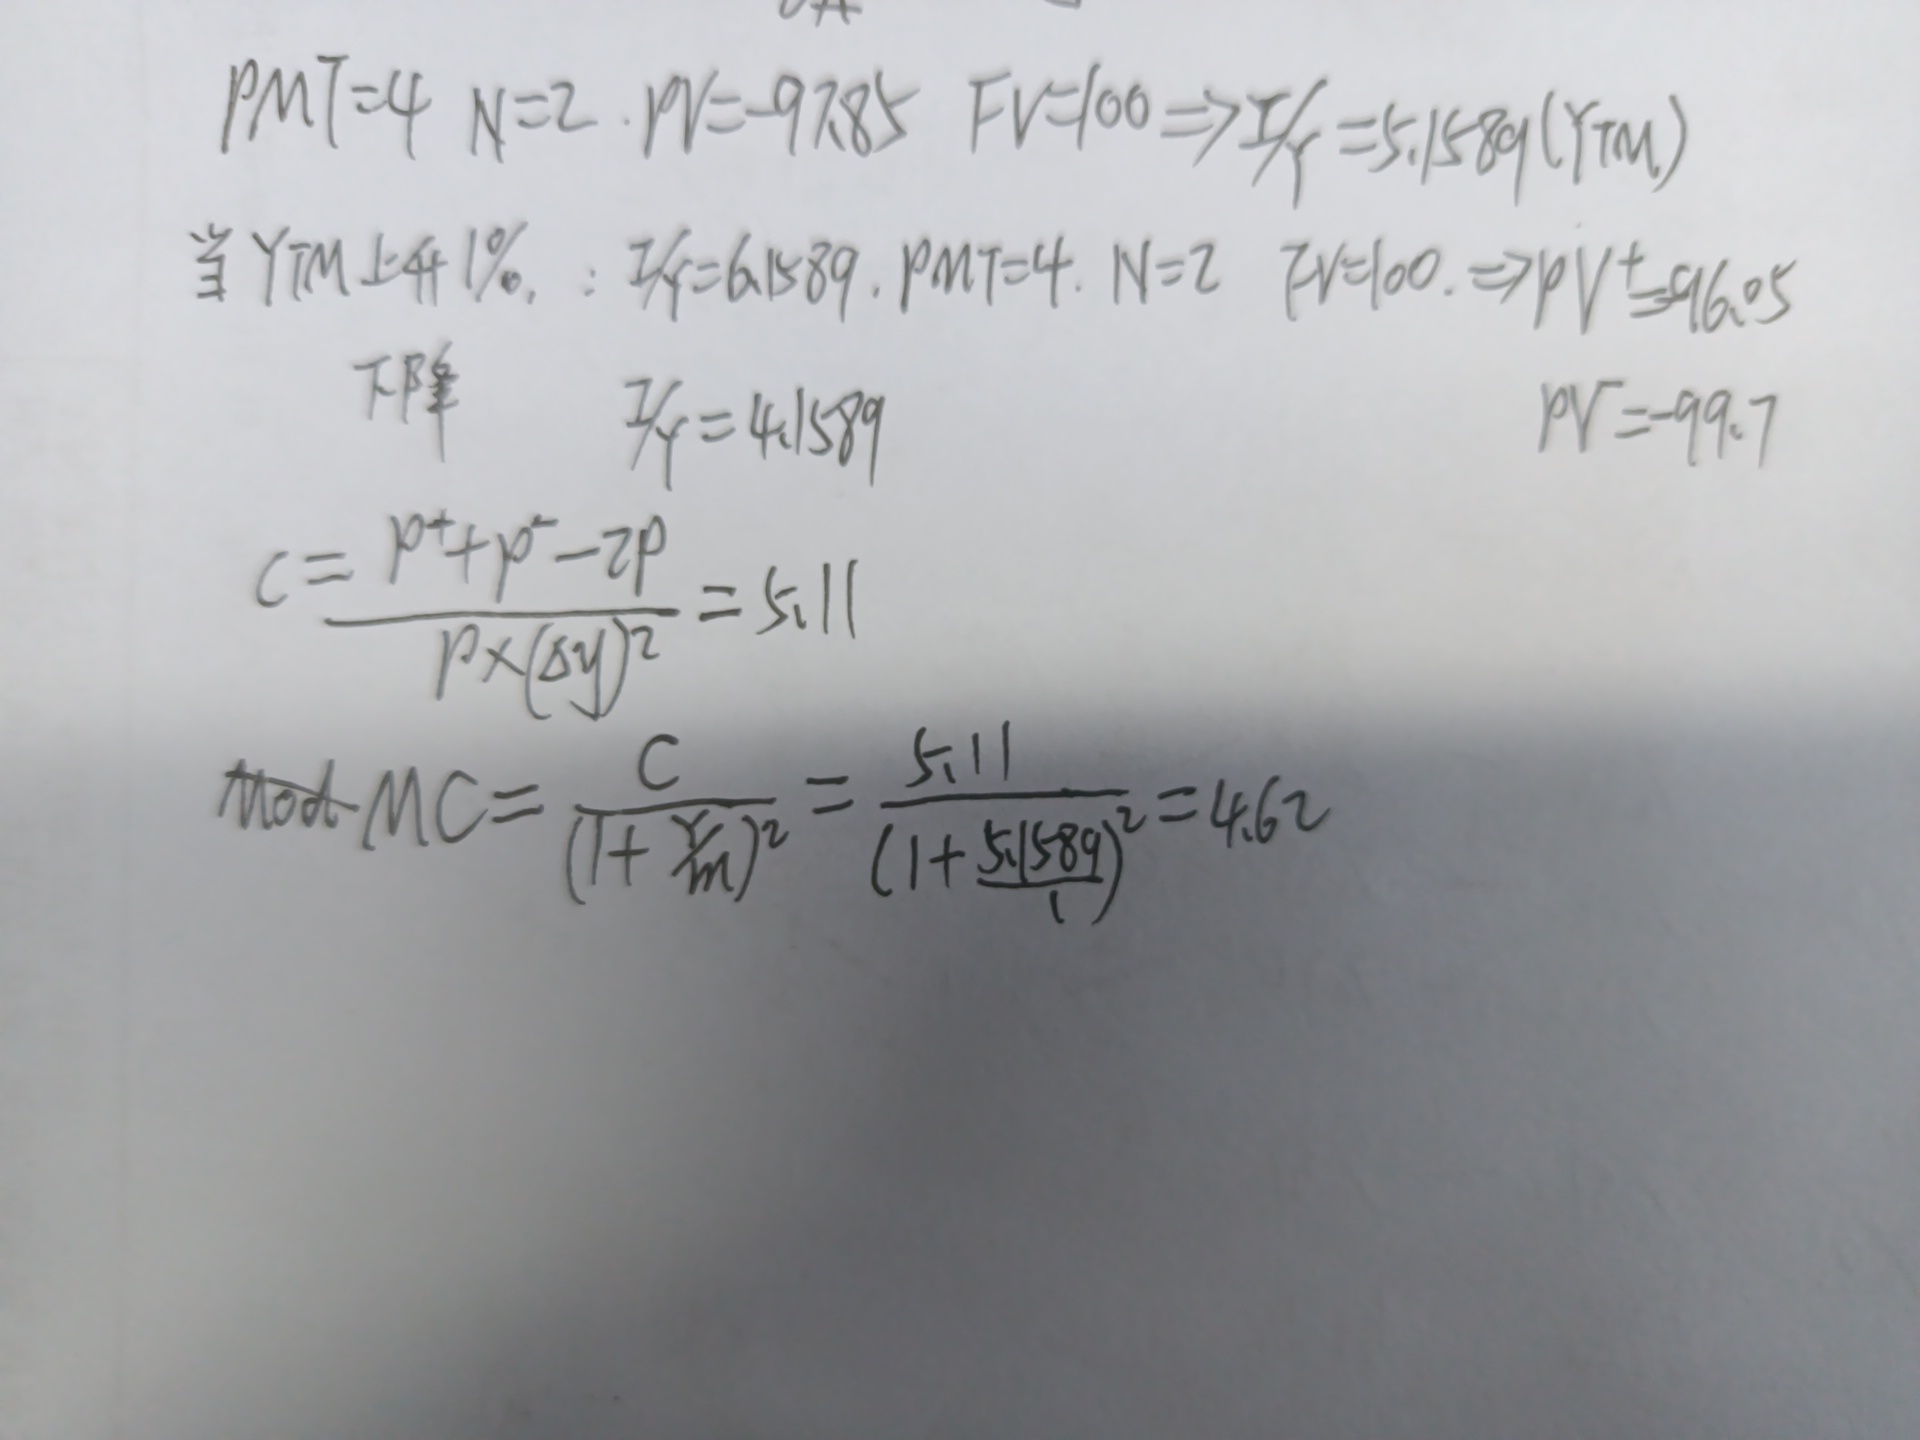 PMT=4 N=2. PV=-97.85 FV=100 ⇒ I/Y=5.1589(YTM)
当YTM上升1%.: I/Y=6.1589. PMT=4. N=2 FV=100. ⇒ PV⁺=-96.05
下降 I/Y=4.1589 PV⁻=-99.7
C= (P⁺+P⁻-2P)/(P×(Δy)²) =5.11
MC= C/(1+Y/m)² = 5.11/(1+5.1589/1)² =4.62